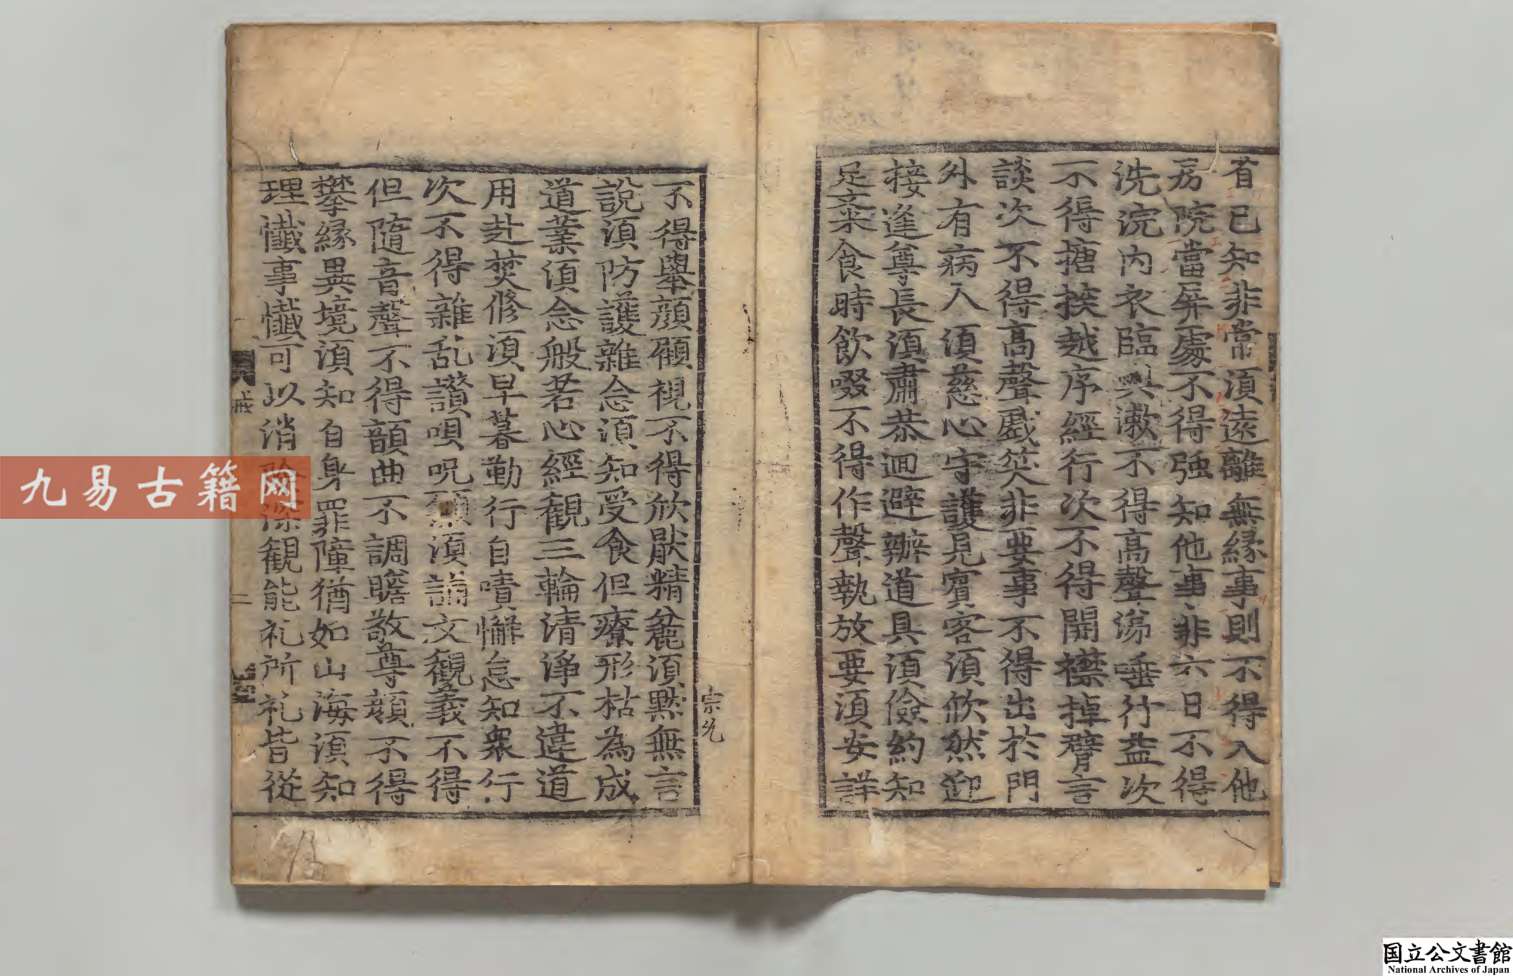 省已知非常湏遠離無緣事則不得入他
房院當屏處不得强知他事非六日不得
洗浣內衣臨盥漱不得髙聲涕唾行益次
不得搪揬越序經行次不得開襟掉臂言
談次不得髙聲戱笑非要事不得出於門
外有病人湏慈心守護見賔客湏忻然迎
接逢尊長湏肅恭迴避辦道具湏儉約知
足齋食時飮啜不得作聲執放要湏安詳
不得擧顔顧視不得欣猒精麁湏黙無言
說湏防護雜念湏知受食但療形枯為成
道業湏念般若心經觀三輪清淨不違道
用赴焚修湏早暮勤行自嘖懈怠知衆行
次不得雜乱讃唄呪願湏誦文觀義不得
但隨音聲不得韻曲不調瞻敬尊顔不得
攀緣異境湏知自身罪障猶如山海湏知
理懺事懺可以消除深觀能礼所礼皆從
戒
二
九易古籍网
国立公文書館
National Archives of Japan